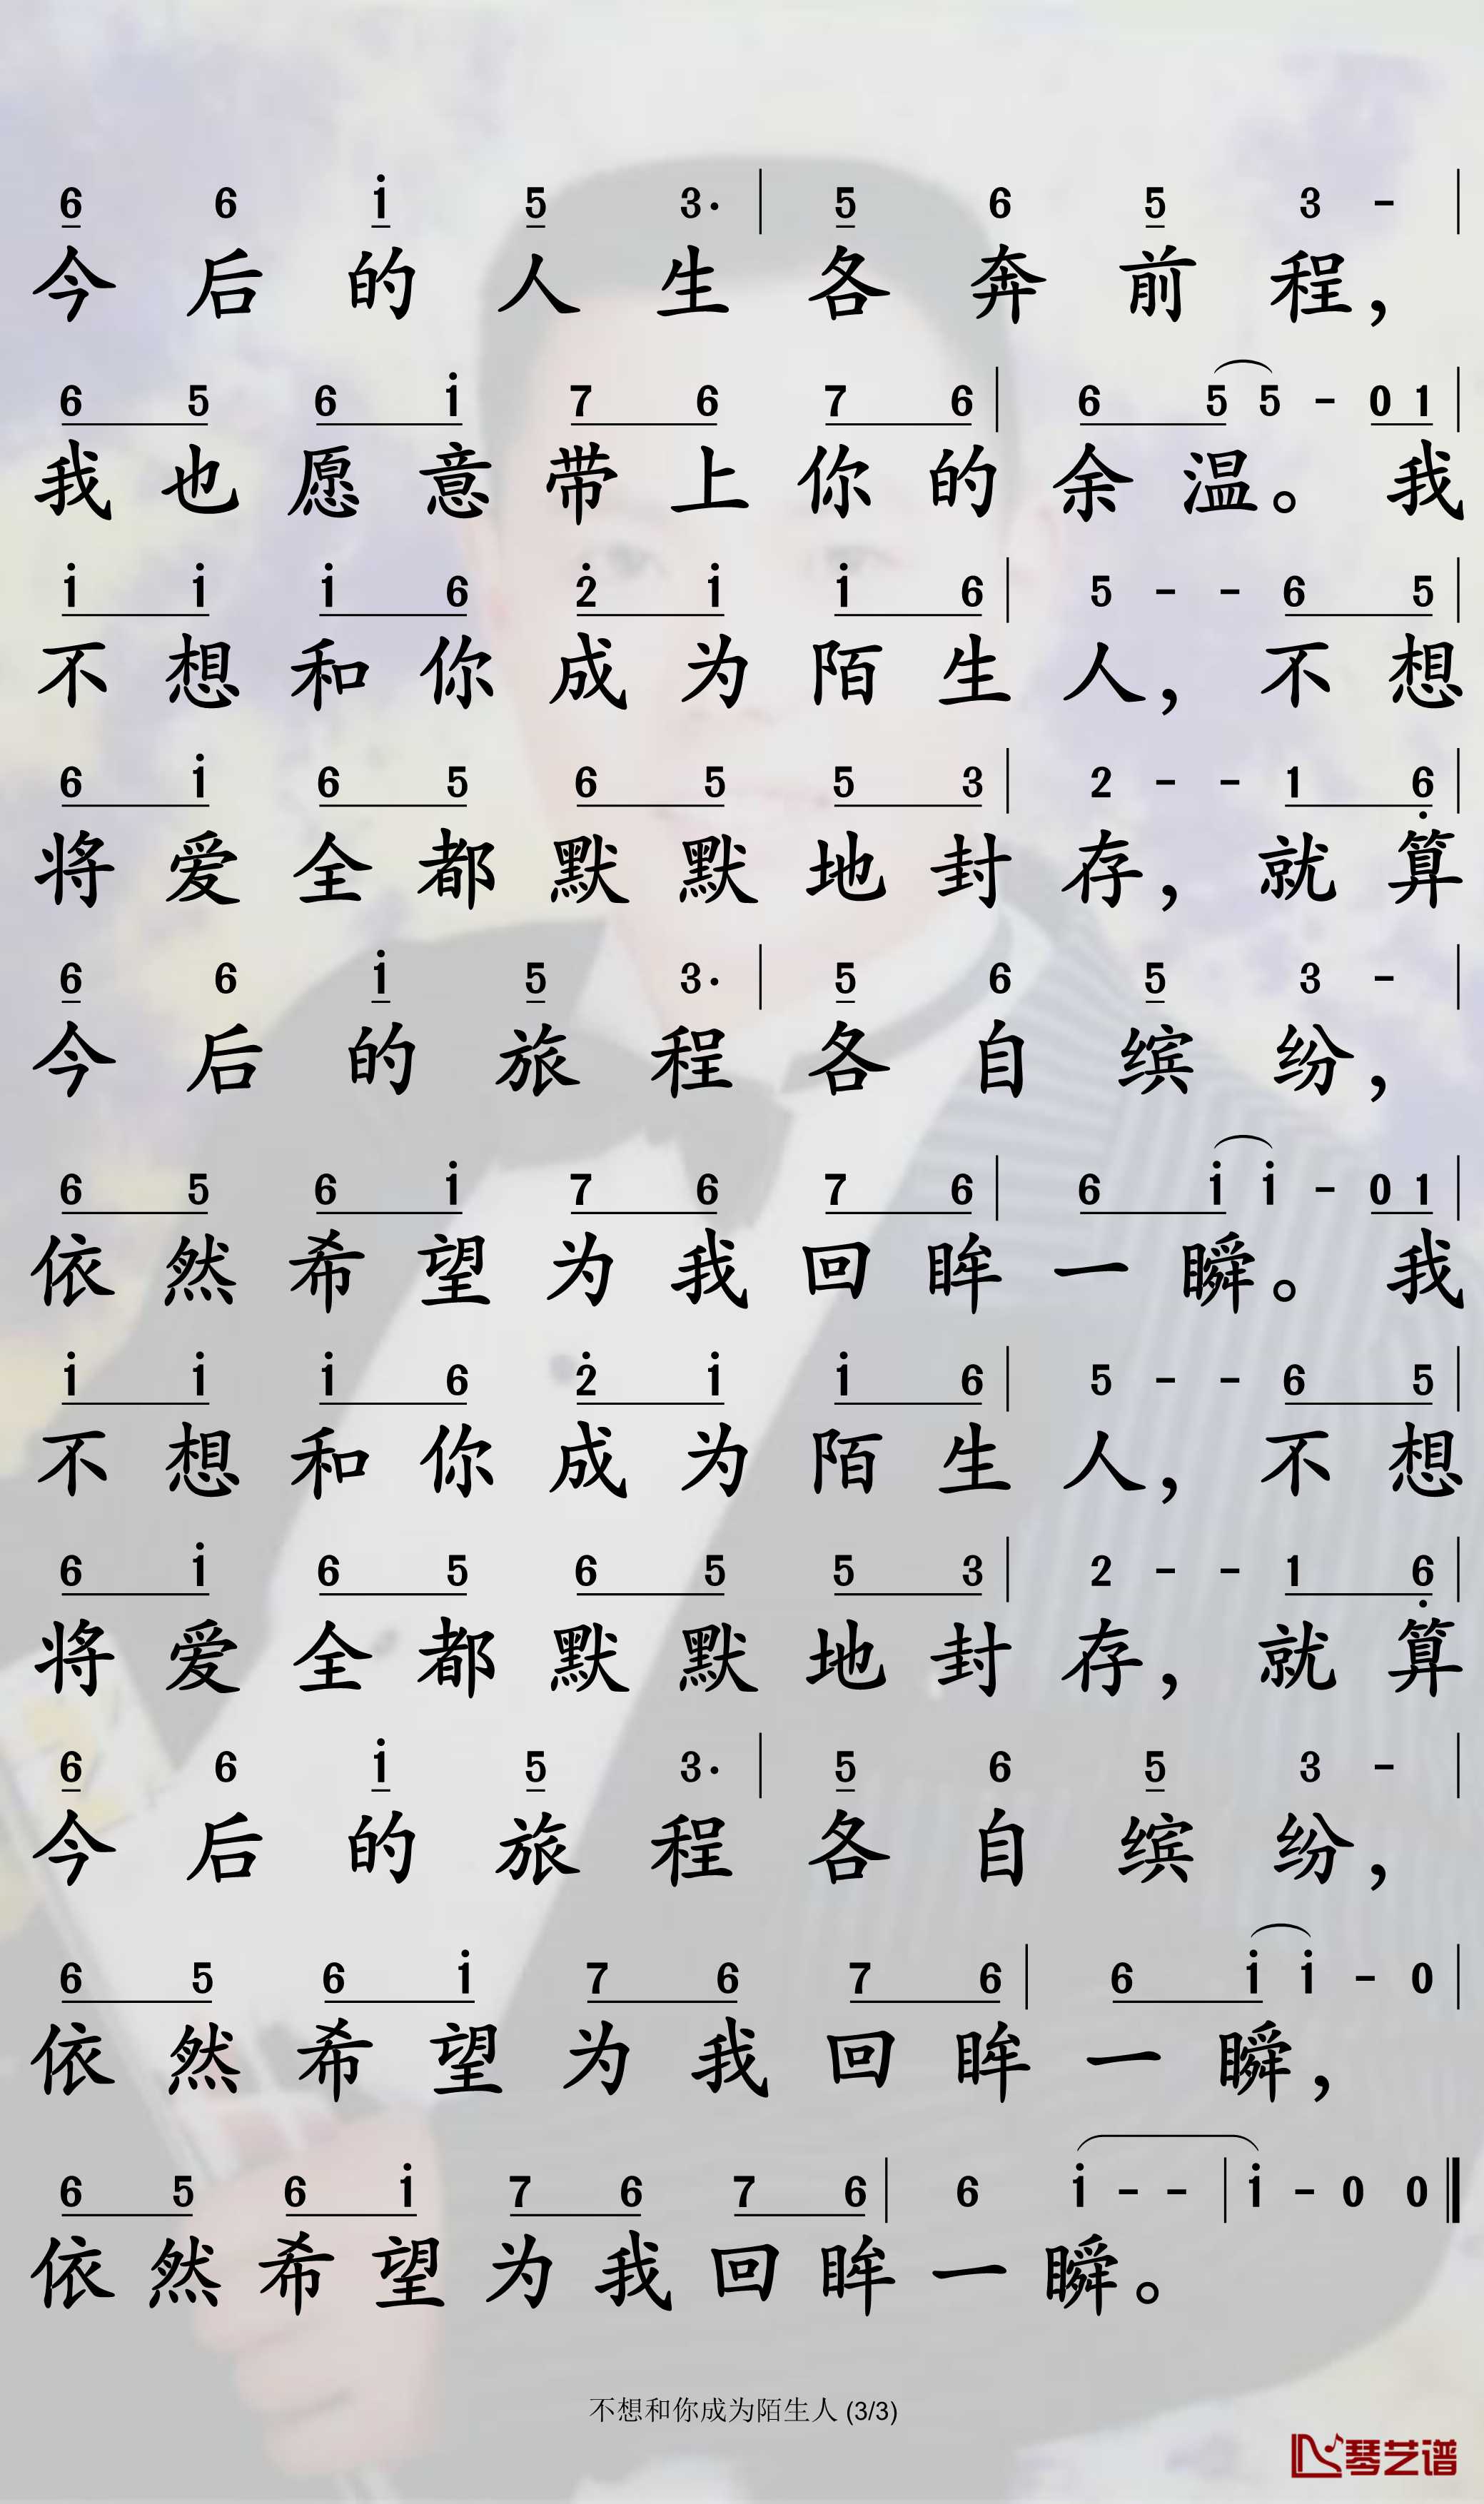 6 6 i 5 3· | 5 6 5 3 - |
今后的人生各奔前程，
6 5 6 i 7 6 7 6 | 6 5 5 - 0 1 |
我也愿意带上你的余温。我
i i i 6 2̇ i i 6 | 5 - - 6 5 |
不想和你成为陌生人，不想
6 i 6 5 6 5 5 3 | 2 - - 1 6̣ |
将爱全都默默地封存，就算
6 6 i 5 3· | 5 6 5 3 - |
今后的旅程各自缤纷，
6 5 6 i 7 6 7 6 | 6 i i - 0 1 |
依然希望为我回眸一瞬。我
i i i 6 2̇ i i 6 | 5 - - 6 5 |
不想和你成为陌生人，不想
6 i 6 5 6 5 5 3 | 2 - - 1 6̣ |
将爱全都默默地封存，就算
6 6 i 5 3· | 5 6 5 3 - |
今后的旅程各自缤纷，
6 5 6 i 7 6 7 6 | 6 i i - 0 |
依然希望为我回眸一瞬，
6 5 6 i 7 6 7 6 | 6 i - - | i - 0 0 ‖
依然希望为我回眸一瞬。
不想和你成为陌生人 (3/3)
琴艺谱